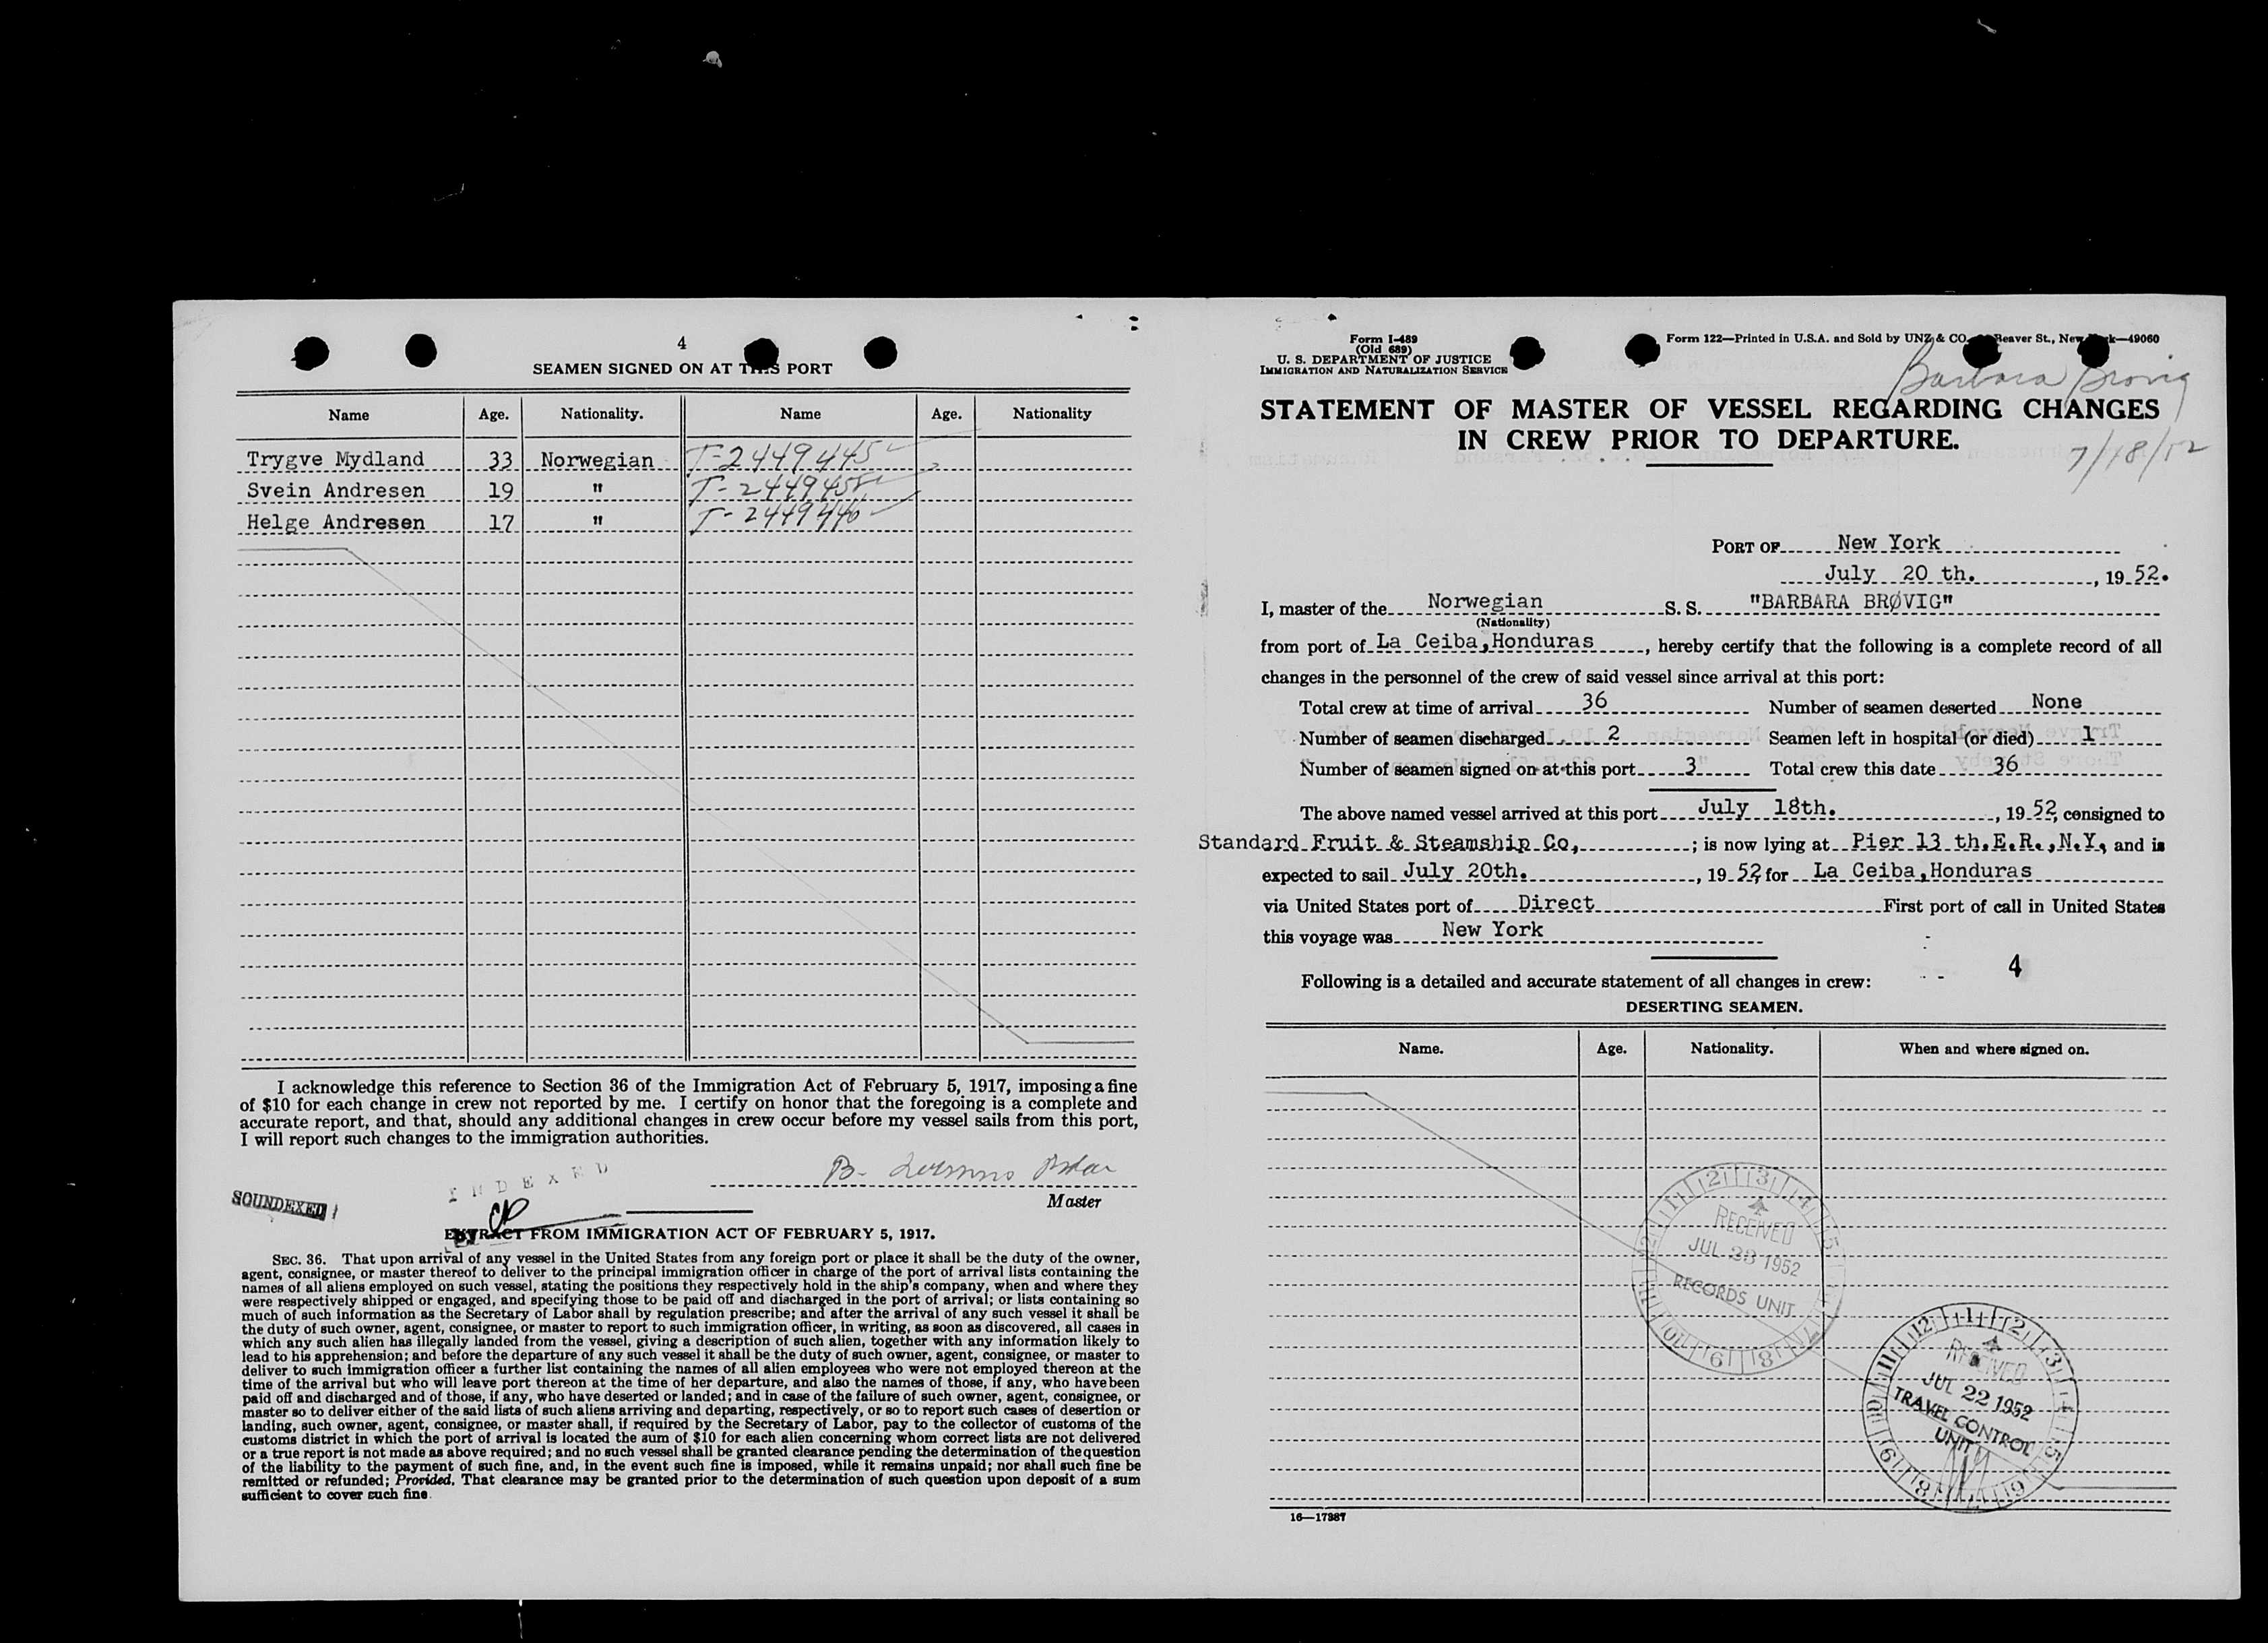 4
SEAMEN SIGNED ON AT THIS PORT
Name Age. Nationality. Name Age. Nationality
Trygve Mydland 33 Norwegian T-2449445
Svein Andresen 19 " T-2449458
Helge Andresen 17 " T-2449446
I acknowledge this reference to Section 36 of the Immigration Act of February 5, 1917, imposing a fine
of $10 for each change in crew not reported by me. I certify on honor that the foregoing is a complete and
accurate report, and that, should any additional changes in crew occur before my vessel sails from this port,
I will report such changes to the immigration authorities.
B.
Master
SOUNDEXED
INDEXED
EXTRACT FROM IMMIGRATION ACT OF FEBRUARY 5, 1917.
SEC. 36. That upon arrival of any vessel in the United States from any foreign port or place it shall be the duty of the owner,
agent, consignee, or master thereof to deliver to the principal immigration officer in charge of the port of arrival lists containing the
names of all aliens employed on such vessel, stating the positions they respectively hold in the ship's company, when and where they
were respectively shipped or engaged, and specifying those to be paid off and discharged in the port of arrival; or lists containing so
much of such information as the Secretary of Labor shall by regulation prescribe; and after the arrival of any such vessel it shall be
the duty of such owner, agent, consignee, or master to report to such immigration officer, in writing, as soon as discovered, all cases in
which any such alien has illegally landed from the vessel, giving a description of such alien, together with any information likely to
lead to his apprehension; and before the departure of any such vessel it shall be the duty of such owner, agent, consignee, or master to
deliver to such immigration officer a further list containing the names of all alien employees who were not employed thereon at the
time of the arrival but who will leave port thereon at the time of her departure, and also the names of those, if any, who have been
paid off and discharged and of those, if any, who have deserted or landed; and in case of the failure of such owner, agent, consignee, or
master so to deliver either of the said lists of such aliens arriving and departing, respectively, or so to report such cases of desertion or
landing, such owner, agent, consignee, or master shall, if required by the Secretary of Labor, pay to the collector of customs of the
customs district in which the port of arrival is located the sum of $10 for each alien concerning whom correct lists are not delivered
or a true report is not made as above required; and no such vessel shall be granted clearance pending the determination of the question
of the liability to the payment of such fine, and, in the event such fine is imposed, while it remains unpaid; nor shall such fine be
remitted or refunded; Provided, That clearance may be granted prior to the determination of such question upon deposit of a sum
sufficient to cover such fine.
Form I-489
(Old 689)
U. S. DEPARTMENT OF JUSTICE
IMMIGRATION AND NATURALIZATION SERVICE
Form 122—Printed in U.S.A. and Sold by UNZ & CO. Beaver St., New York—49060
Barbara Brovig
STATEMENT OF MASTER OF VESSEL REGARDING CHANGES
IN CREW PRIOR TO DEPARTURE.
7/18/52
PORT OF New York
July 20 th., 1952.
I, master of the Norwegian S. S. "BARBARA BRØVIG"
(Nationality)
from port of La Ceiba, Honduras, hereby certify that the following is a complete record of all
changes in the personnel of the crew of said vessel since arrival at this port:
Total crew at time of arrival 36 Number of seamen deserted None
Number of seamen discharged 2 Seamen left in hospital (or died) 1
Number of seamen signed on at this port 3 Total crew this date 36
The above named vessel arrived at this port July 18th., 1952, consigned to
Standard Fruit & Steamship Co, ; is now lying at Pier 13 th.E.R.,N.Y, and is
expected to sail July 20th., 1952, for La Ceiba, Honduras
via United States port of Direct First port of call in United States
this voyage was New York
4
Following is a detailed and accurate statement of all changes in crew:
DESERTING SEAMEN.
Name. Age. Nationality. When and where signed on.
RECEIVED
JUL 23 1952
RECORDS UNIT
RECEIVED
JUL 22 1952
TRAVEL CONTROL
UNIT
16—17387